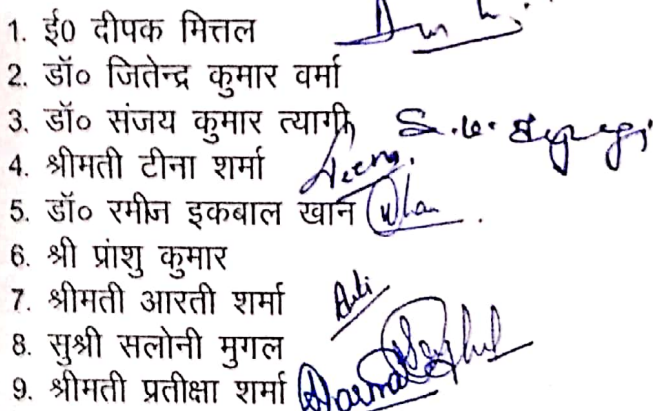 1. ई0 दीपक मित्तल
2. डॉ० जितेन्द्र कुमार वर्मा
3. डॉ० संजय कुमार त्यागी S.K. Tyagi
4. श्रीमती टीना शर्मा
5. डॉ० रमीज इकबाल खान Khan
6. श्री प्रांशु कुमार
7. श्रीमती आरती शर्मा
8. सुश्री सलोनी मुगल
9. श्रीमती प्रतीक्षा शर्मा